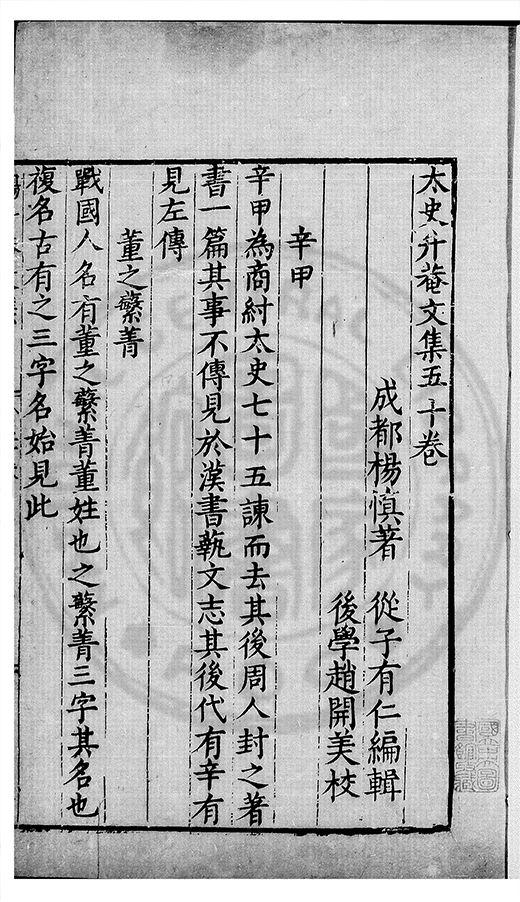 太史升菴文集五十卷
成都楊慎著 從子有仁編輯
後學趙開美校
辛甲
辛甲為商紂太史七十五諫而去其後周人封之著
書一篇其事不傳見於漢書藝文志其後代有辛有
見左傳
董之蘩菁
戰國人名有董之蘩菁董姓也之蘩菁三字其名也
複名古有之三字名始見此